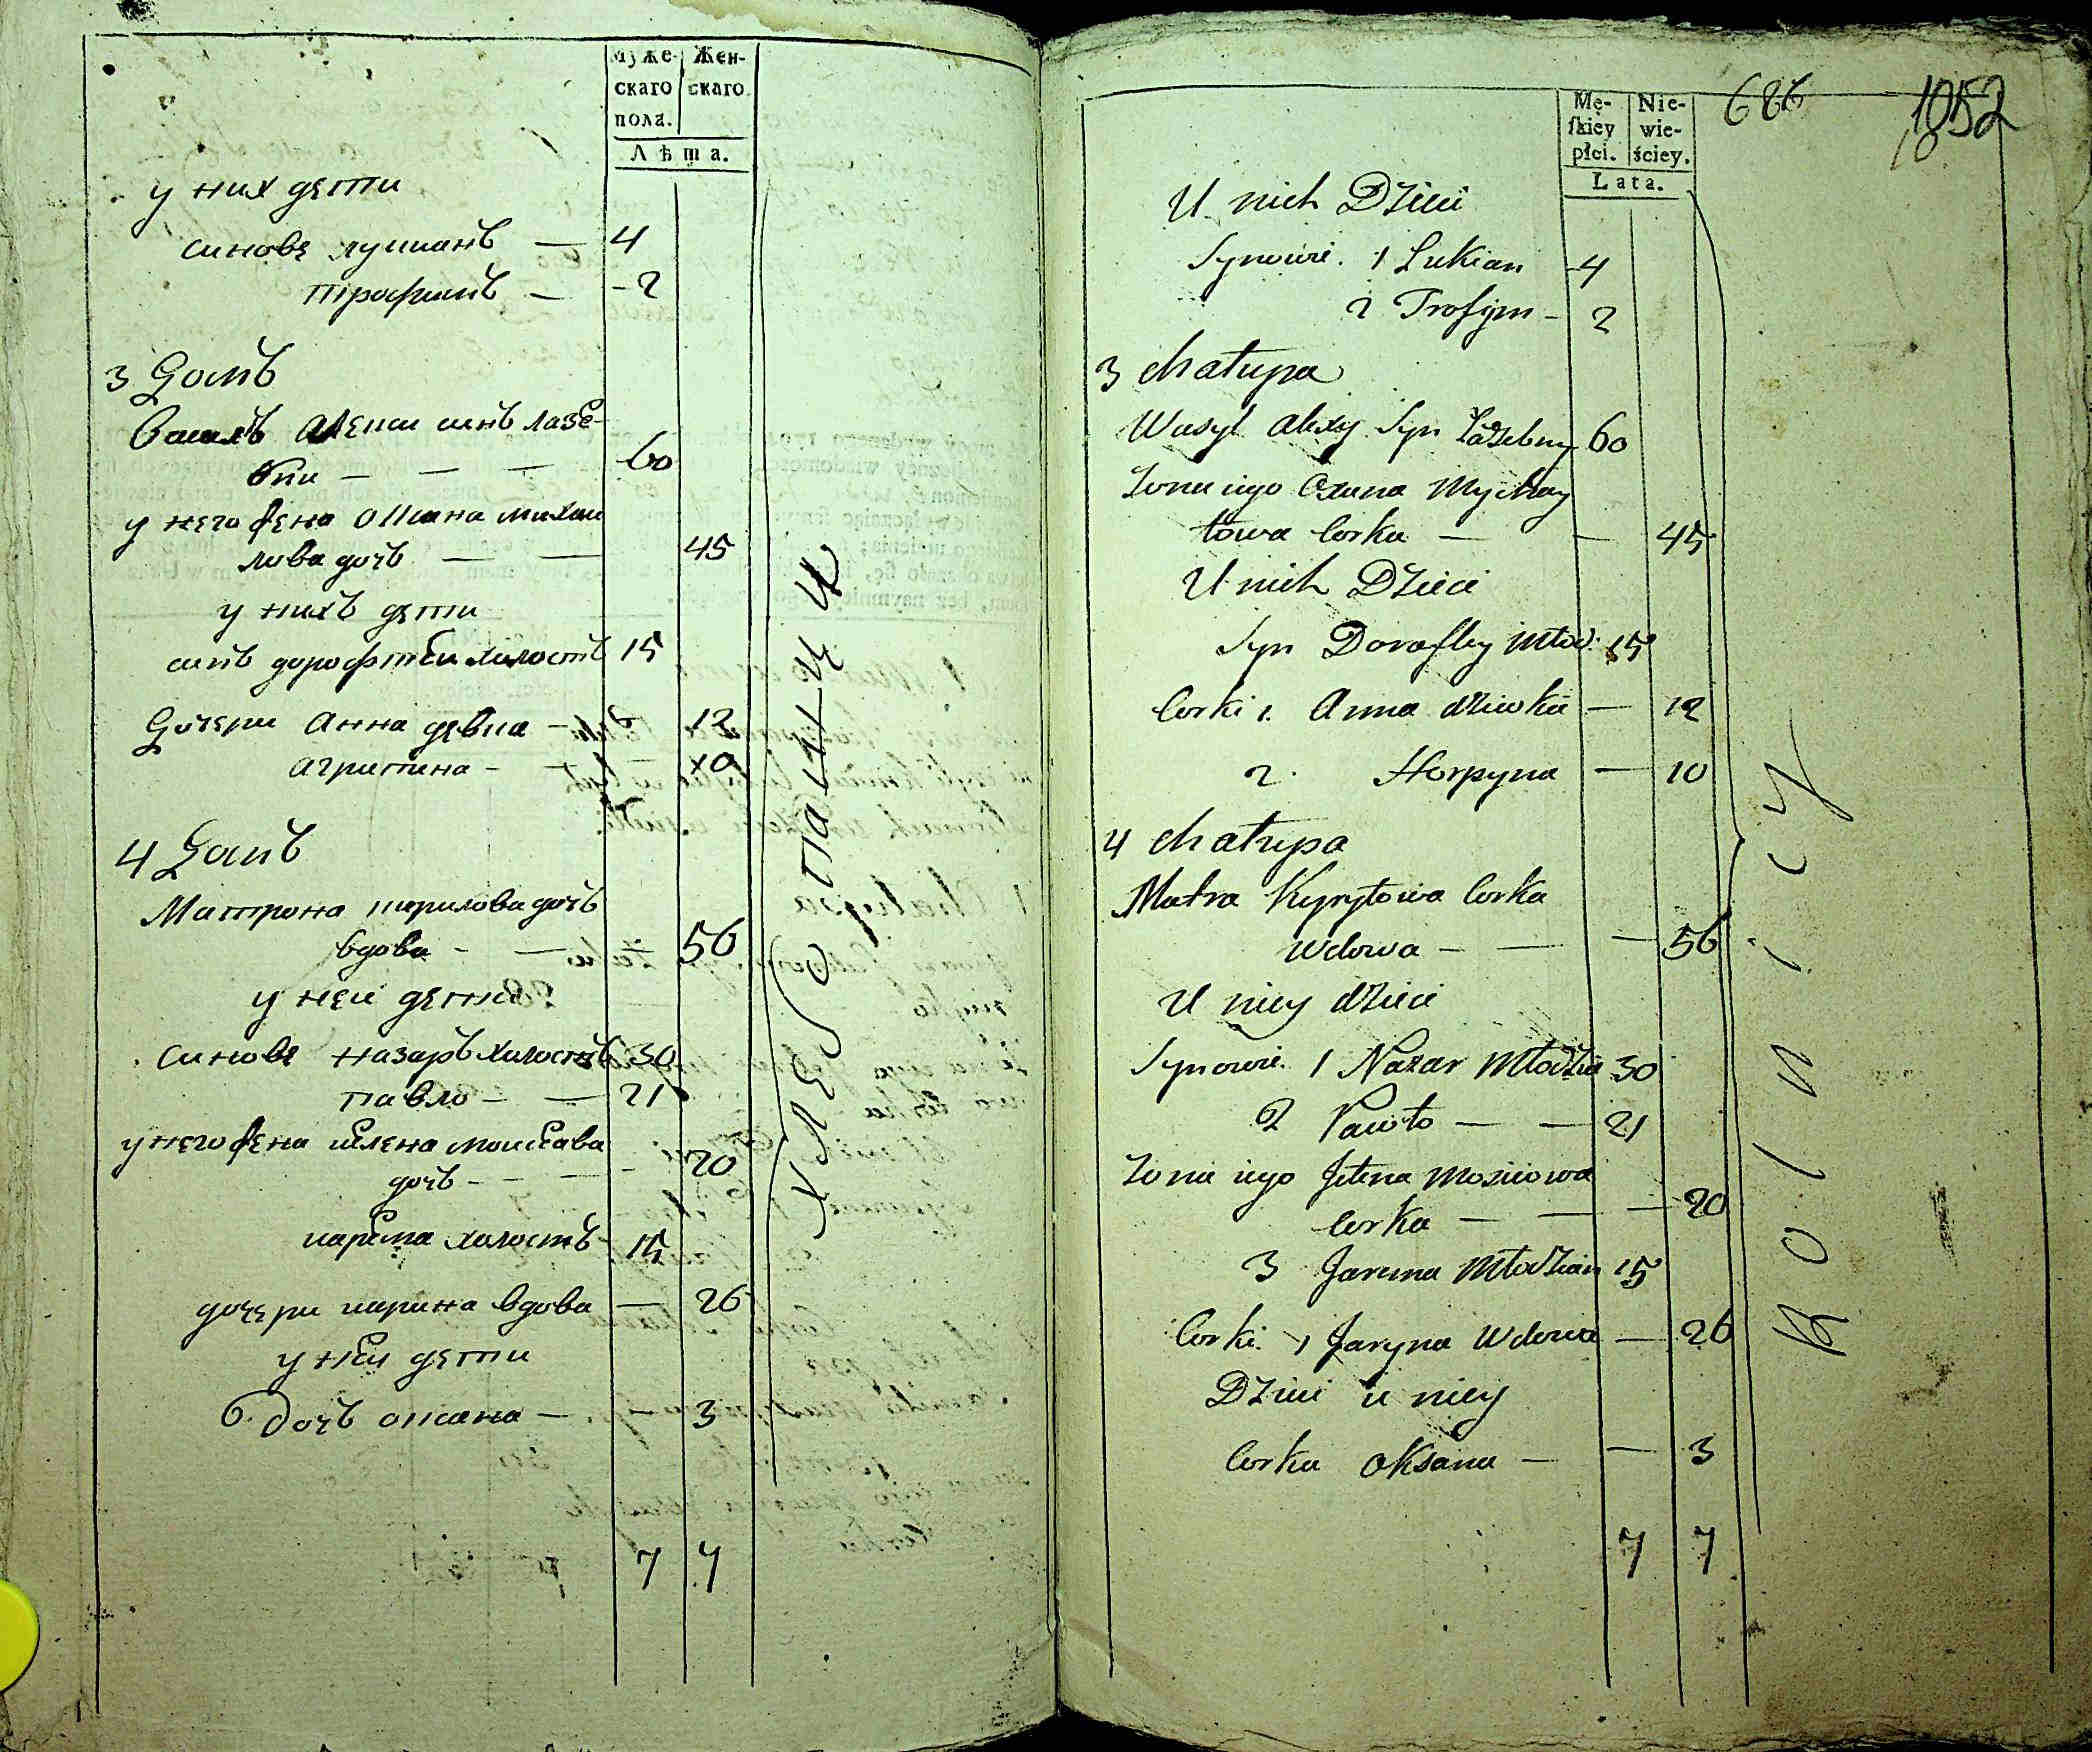 Муже- Жен-
скаго скаго
пола.
Лѣта.
у них дети
синове лукианъ — 4
трофимъ — 2
3 Домъ
Василъ алекси синъ лазѣ-
бни — — — 60
у него жена оксана михаи
лова дочъ — — 45
у нихъ дети
синъ дорофтѣи холостъ 15
Дочери анна девка — 12
агрипина - - 10
4 Домъ
Матрона кирилова дочъ
вдова - — 56
у неи дети
синове назаръ холостъ 30
павло - — 21
у него жена ѣлена моисѣава
дочъ - - - - 20
ярѣма холостъ - 15
дочери ирина вдова — 26
у нѣи дети
дочъ оксана — - 3
7 7
хлебопашци
686 1052
Mę- Nie-
skiey wie-
płci. ściey.
Lata.
U nich Dzieci
Synowie. 1 Lukian 4
2 Trofym - 2
3 chałupa
Wasyl alexy Syn Łaźebny 60
Zona iego Oxana Mychay
łowa Corka — — 45
U nich Dzieci
Syn Doroftey Młod: 15
Corki 1. Anna dziewka — 12
2. Horpyna — 10
4 chałupa
Matra Kyryłowa Corka
Wdowa — — — 56
U niey dzieci
Synowie. 1 Nazar Młodzia 30
2 Pawło — — 21
Zona iego Jełena Mosiiowa
Corka — — — 20
3 Jarema Młodzian 15
Corki. 1 Jaryna Wdowa — 26
Dzieci u niey
Corka oksana — — 3
7 7
Rolnicy